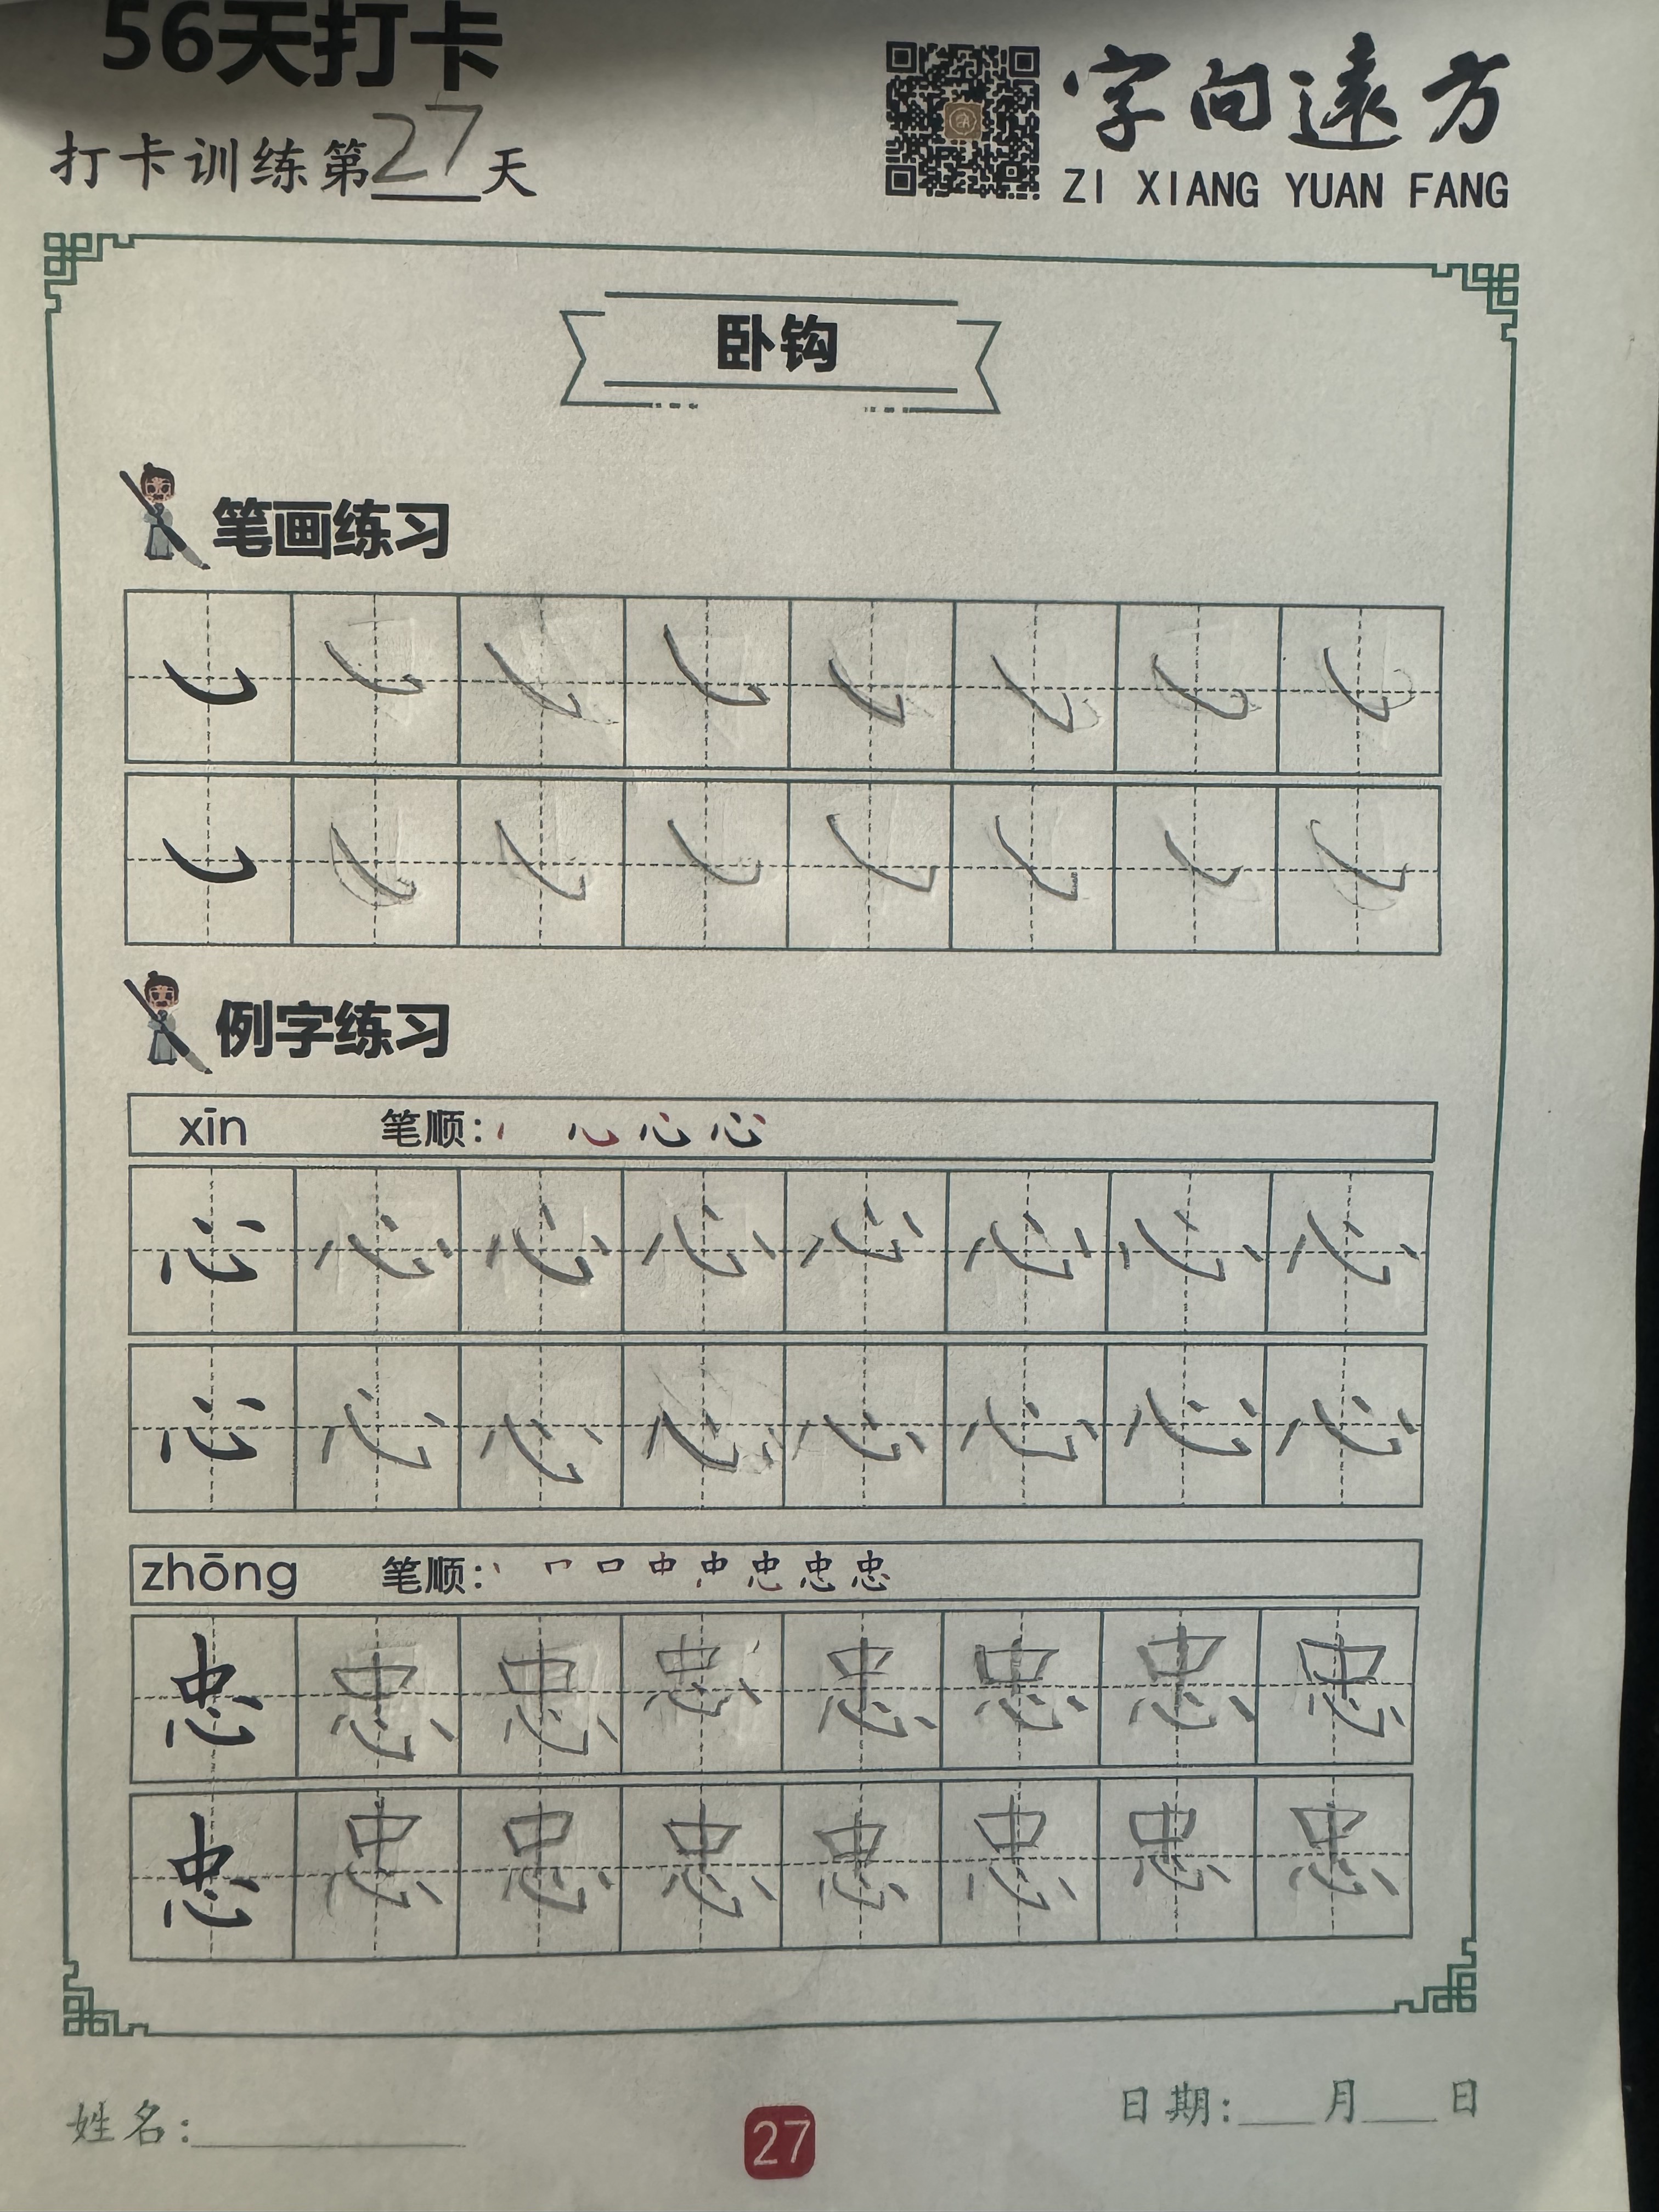 56天打卡
打卡训练第27天
字向遠方
ZI XIANG YUAN FANG
卧钩
笔画练习
例字练习
xīn 笔顺: 心
心 心 心 心 心 心 心 心
心 心 心 心 心 心 心 心
zhōng 笔顺: 丶 口 中 忠 忠 忠
忠 忠 忠 忠 忠 忠 忠 忠
忠 忠 忠 忠 忠 忠 忠 忠
姓名:
27
日期: 月 日